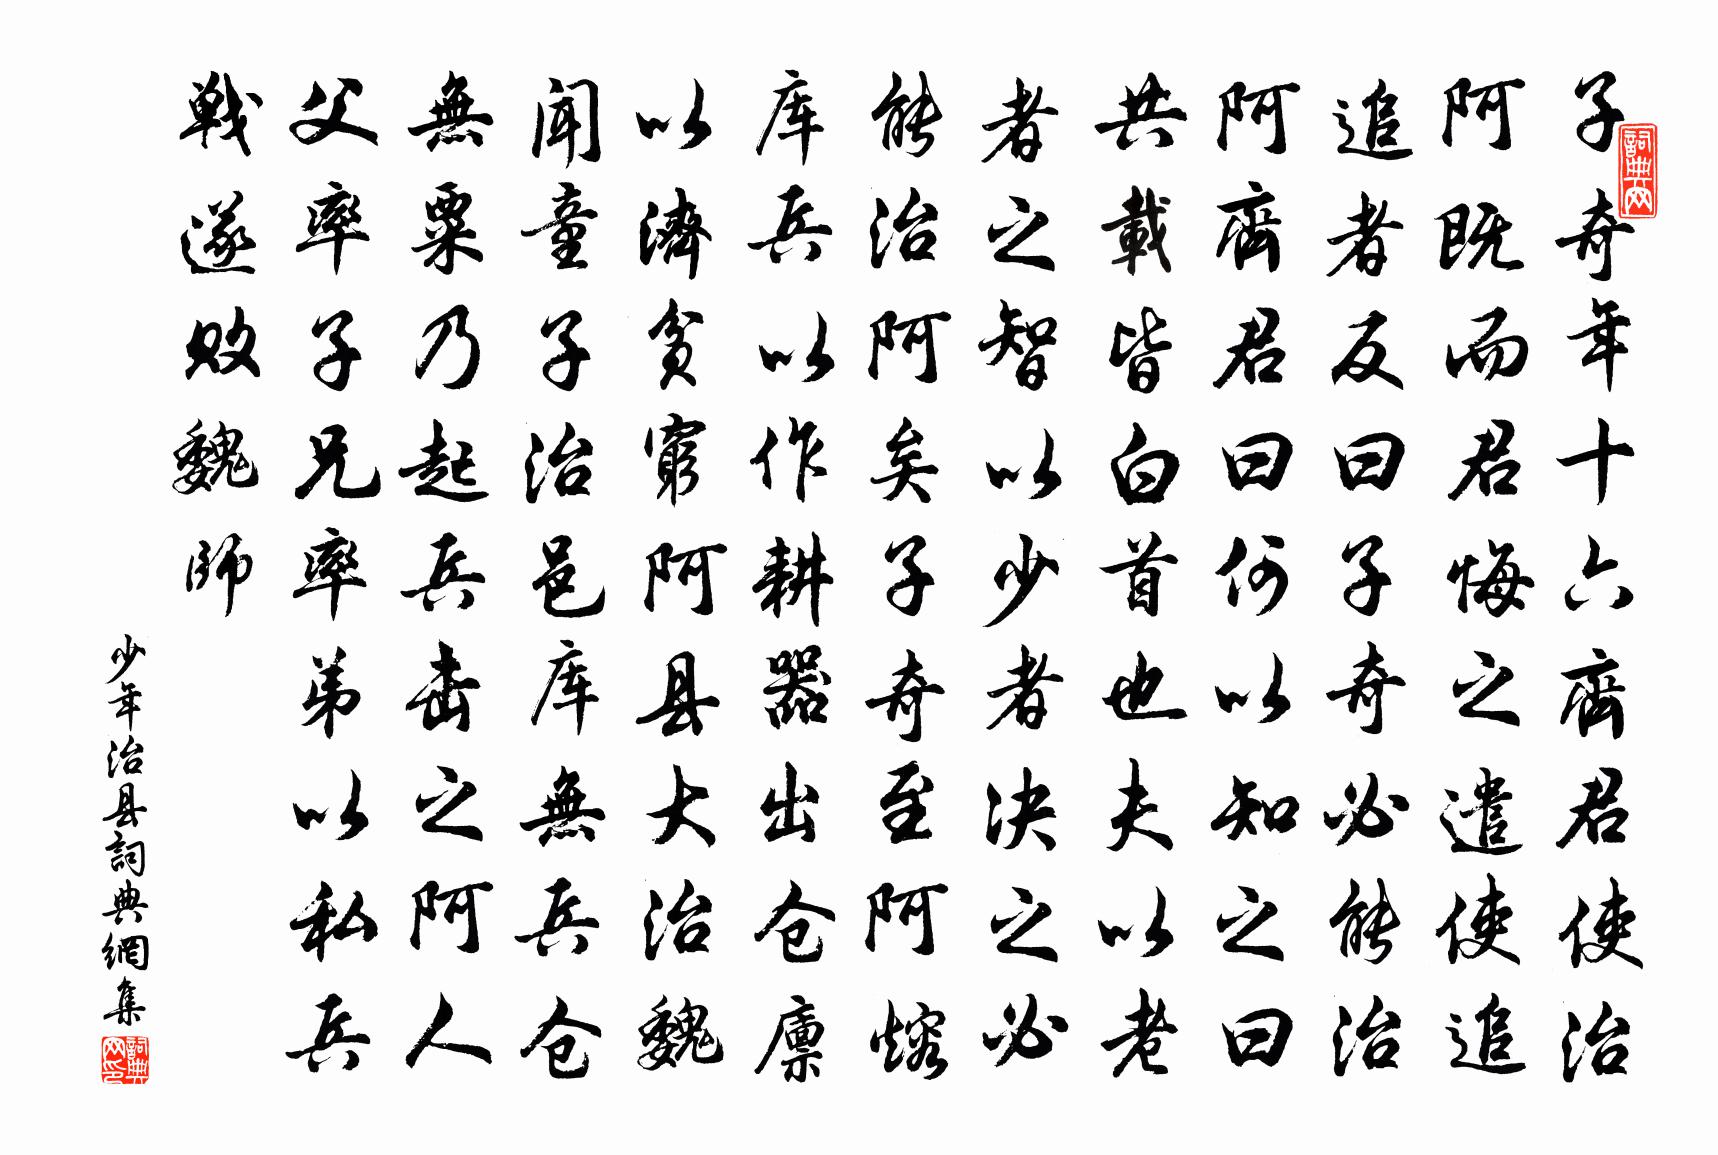 子奇年十六齊君使治
阿既而君悔之遣使追
追者反曰子奇必能治
阿齊君曰何以知之曰
共載皆白首也夫以老
者之智以少者决之必
能治阿矣子奇至阿熔
库兵以作耕器出仓廪
以濟貧窮阿县大治魏
闻童子治邑库無兵仓
無粟乃起兵击之阿人
父率子兄率弟以私兵
戦遂败魏師
少年治县詞典網集
詞典网
詞典网印